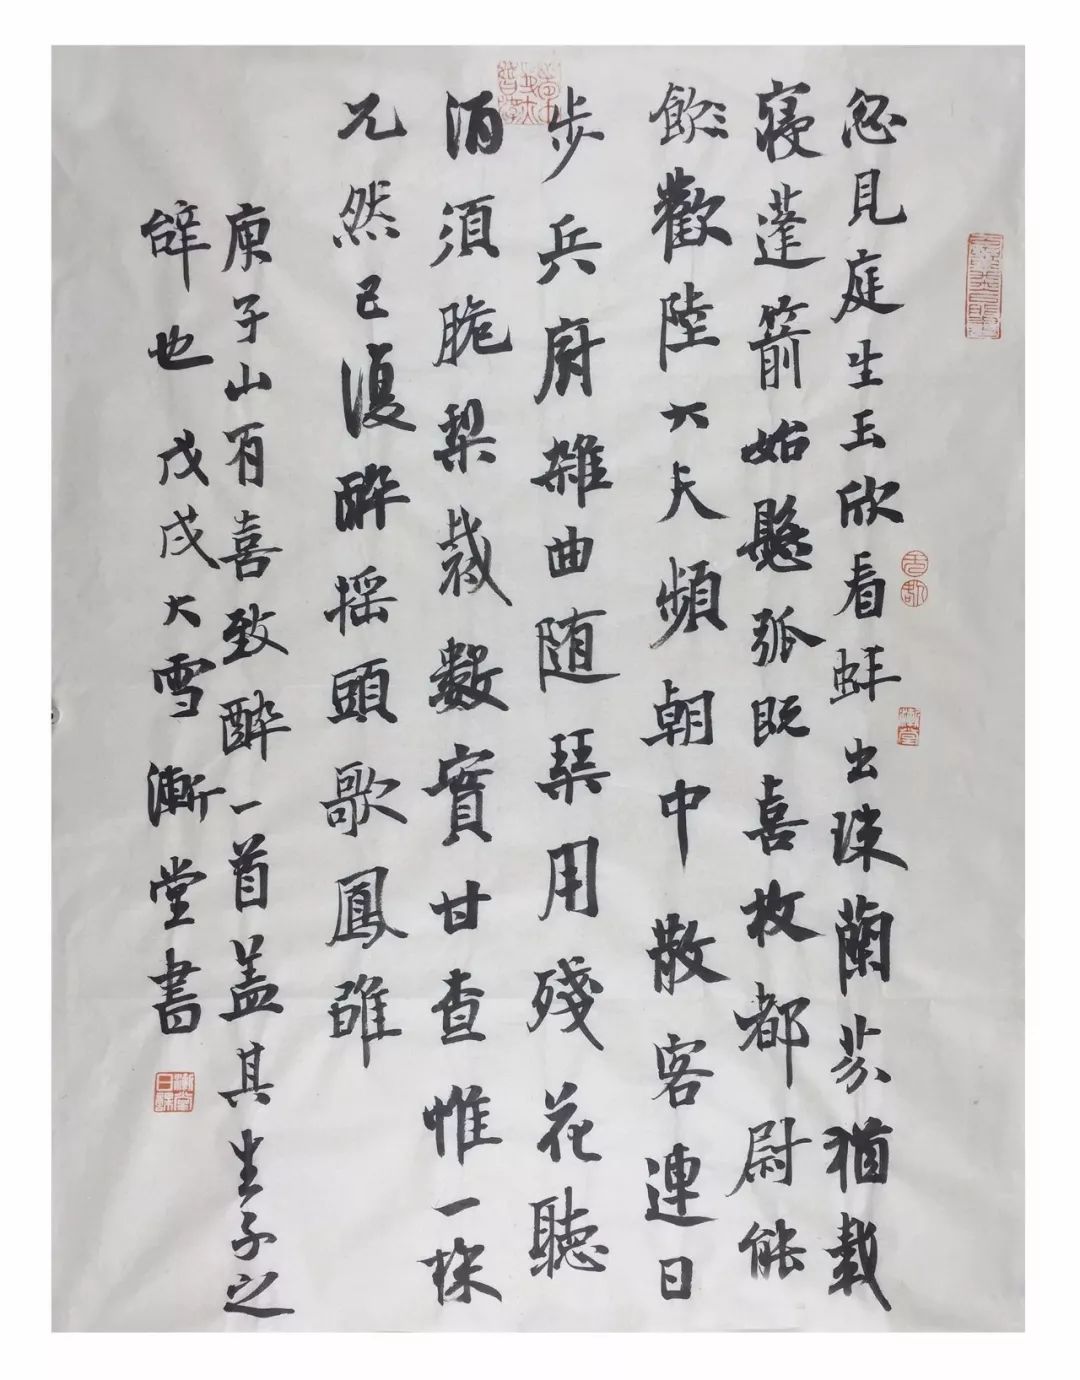 忽見庭生玉欣看蚌出珠蘭芬猶載
寢蓬箭始懸弧既喜枚都尉能
飲歡陸大夫頻朝中散客連日
步兵廚雜曲随琴用殘花聽
酒須脆梨裁數實甘查惟一株
兀然已復醉摇頭歌鳳雛
庾子山有喜致醉一首盖其生子之
辝也 戊戌大雪漸堂書
漸堂
漸堂日課